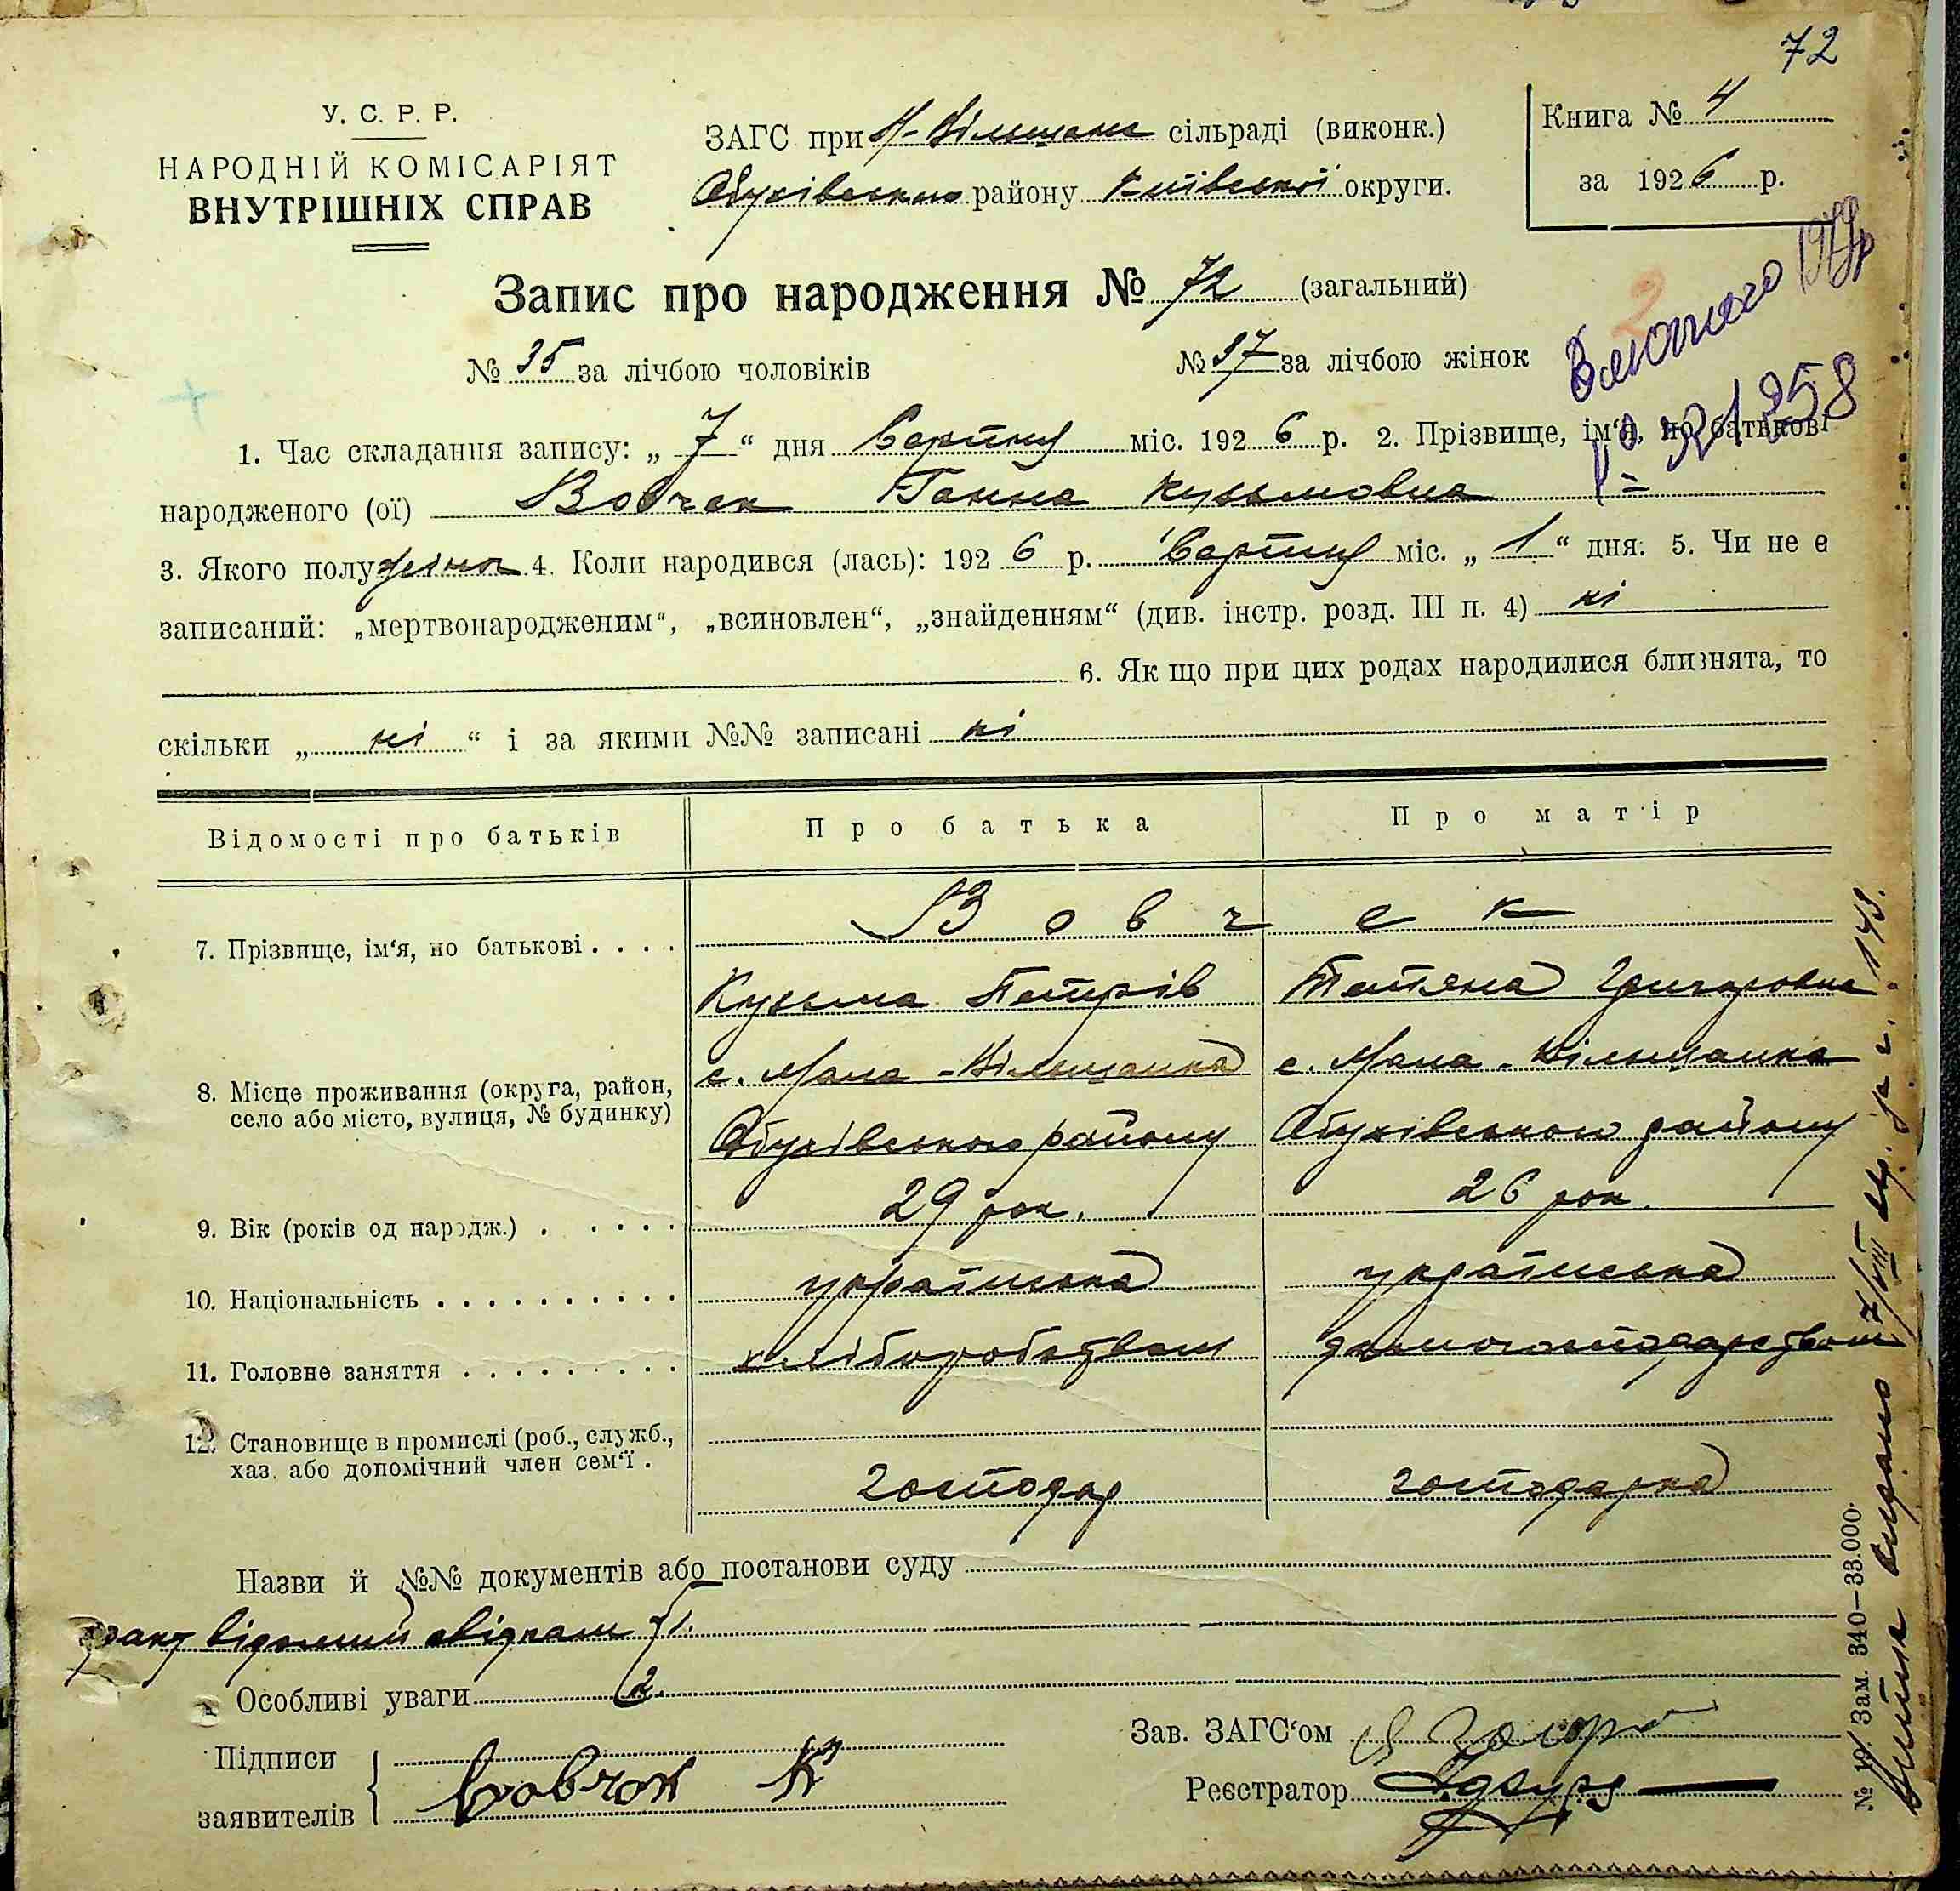 72
У. С. Р. Р.
НАРОДНІЙ КОМІСАРІЯТ
ВНУТРІШНІХ СПРАВ
ЗАГС при М-Вільшане сільраді (виконк.)
Обухівського району Київської округи.
Книга № 4
за 1926 р.
Запис про народження № 72 (загальний)
№ 35 за лічбою чоловіків № 37 за лічбою жінок
1. Час складання запису: „ 7 “ дня Серпня міс. 1926 р. 2. Прізвище, ім‘я, по батькові
народженого (ої) Вовчек Ганна Кузьмовна
3. Якого полу жіноч 4. Коли народився (лась): 1926 р. Серпня міс. „ 1 “ дня. 5. Чи не є
записаний: „мертвонародженим“, „всиновлен“, „знайденням“ (див. інстр. розд. III п. 4) ні
6. Як що при цих родах народилися близнята, то
скільки „ ні “ і за якими №№ записані ні
Відомості про батьків Про батька Про матір
7. Прізвище, ім‘я, по батькові . . . . Вовчек
Кузьма Петрів Татяна Григоровна
8. Місце проживання (округа, район, с. Мала-Вільшанка с. Мала-Вільшанка
село або місто, вулиця, № будинку) Обухівського району Обухівського району
9. Вік (років од народж.) . . . . . 29 рок. 26 рок.
10. Національність . . . . . . . . . . українська українська
11. Головне заняття . . . . . . . . . хліборобством домогосподарством
12. Становище в промислі (роб., служб.,
хаз. або допомічний член сем‘ї . господар господарка
Назви й №№ документів або постанови суду
факт відомий свідкам
Особливі уваги
Підписи
заявителів Вовчок К
Зав. ЗАГС‘ом
Реєстратор
№ 19. Зам. 340—33.000.